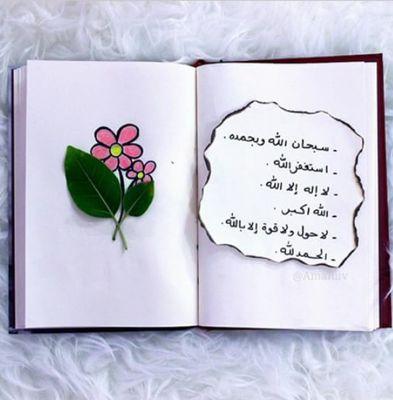 - سبحان الله وبحمده .
- استغفرالله .
- لا إله إلا الله .
- الله اكبر .
- لا حول ولا قوة إلا بالله .
- الحمدلله .